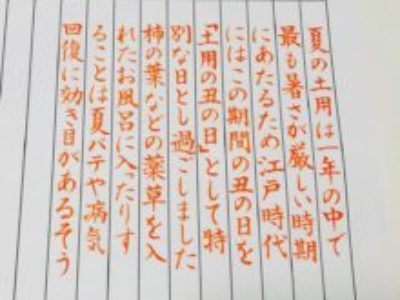 夏の土用は一年の中で
最も暑さが厳しい時期
にあたるため江戸時代
にはこの期間の丑の日を
「土用の丑の日」として特
別な日とし過ごしました
柿の葉などの薬草を入
れたお風呂に入ったりす
ることは夏バテや病気
回復に効き目があるそう